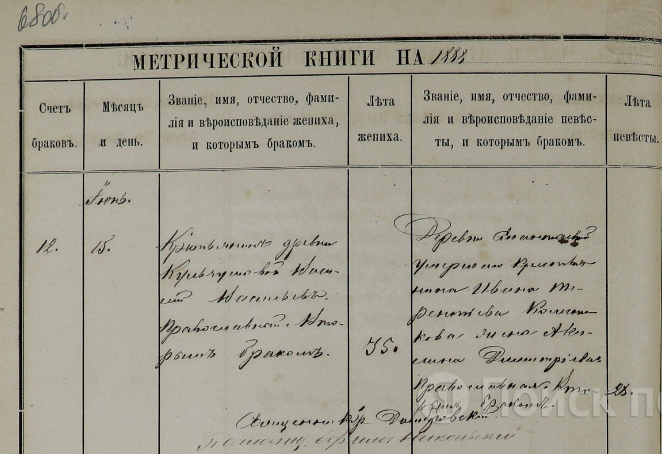 6800.
МЕТРИЧЕСКОЙ КНИГИ НА 1883
Счетъ
браковъ.
Мѣсяцъ
и день.
Званіе, имя, отчество, фами-
лія и вѣроисповѣданіе жениха,
и которымъ бракомъ.
Лѣта
жениха.
Званіе, имя, отчество, фами-
лія и вѣроисповѣданіе невѣс-
ты, и которымъ бракомъ.
Лѣта
невѣсты.
Іюнь.
12.
15.
Крестьянинъ древни
Васи-
лій Васильевъ.
Православный. Вто-
рымъ бракомъ.
35.
Деревни
умершаго крестья-
нина Ивана Те-
рентьева
жена Аку-
лина Димитріева
Православная Вто-
рымъ бракомъ
28
Священникъ
ПОИСК ПО